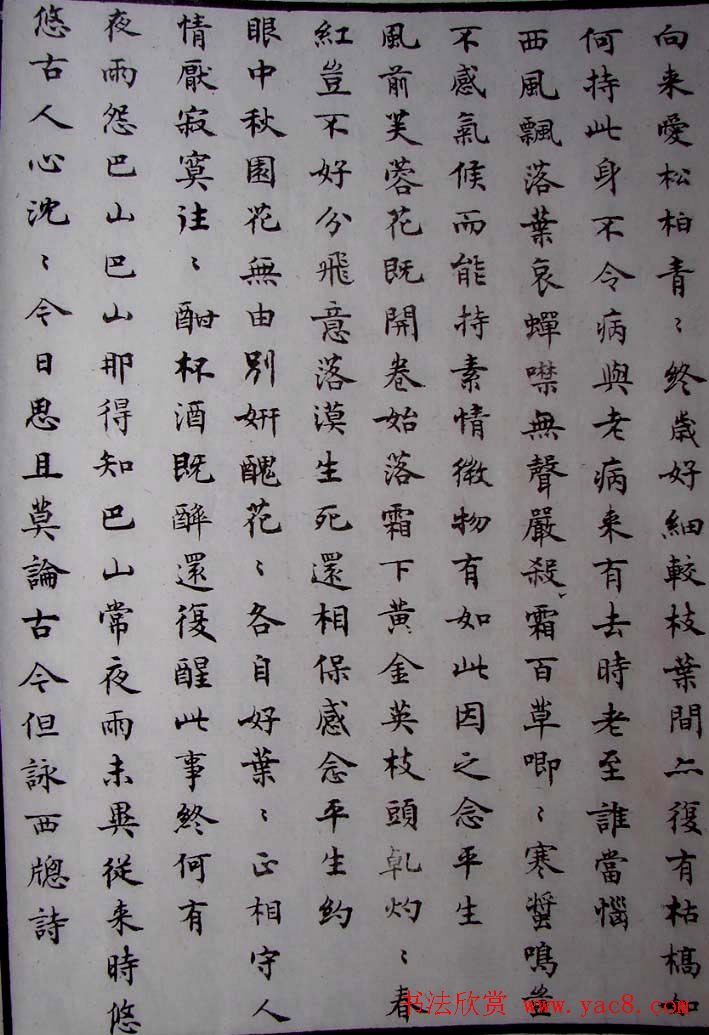 向来愛松柏青〻終歲好細較枝葉間亠復有枯槁如
何持此身不令病與老病来有去時老至誰當惱
西風飄落葉哀蟬噤無聲嚴殺霜百草唧〻寒螿鳴豈
不感氣候而能持素情微物有如此因之念平生
風前芙蓉花既開卷始落霜下黃金英枝頭乹灼〻春
紅豈不好分飛意落漠生死還相保感念平生約
眼中秋園花無由別妍醜花〻各自好葉〻正相守人
情厭寂寞往〻酣杯酒既醉還復醒此事終何有
夜雨怨巴山巴山那得知巴山常夜雨未異從来時悠
悠古人心沈〻今日思且莫論古今但詠西牕詩
书法欣赏 www.yac8.com